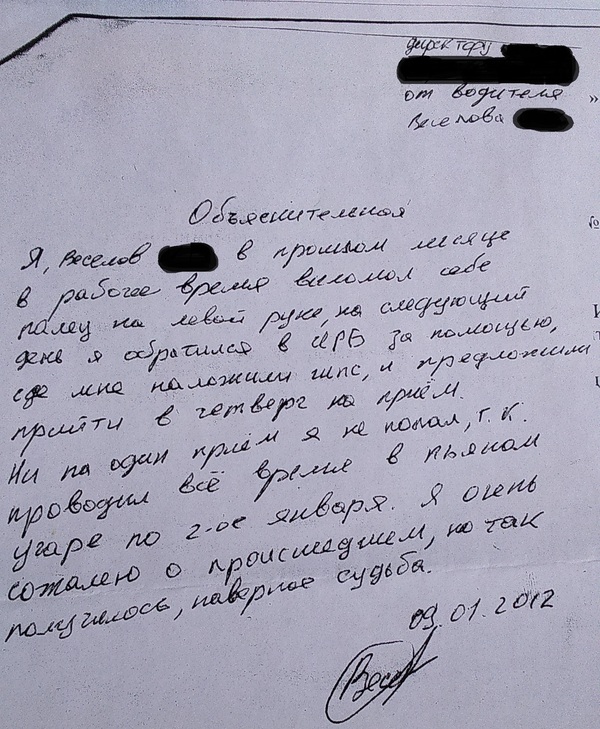 директору
от водителя
Веселова
Объяснительная
Я, Веселов в прошлом месяце
в рабочее время выломал себе
палец на левой руке, на следующий
день я обратился в ЦРБ за помощью,
где мне наложили гипс, и предложили
прийти в четверг на приём.
Ни на один приём я не попал, т.к.
проводил всё время в пьяном
угаре по 2-ое января. Я очень
сожалею о происшедшем, но так
получилось, наверное судьба.
09.01.2012
Весел